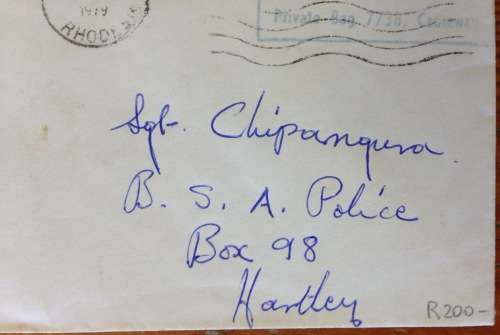 1979
RHODESIA
Private Bag 7750, Causeway
Sgt. Chipangura.
B. S. A. Police
Box 98
Hartley
R200-